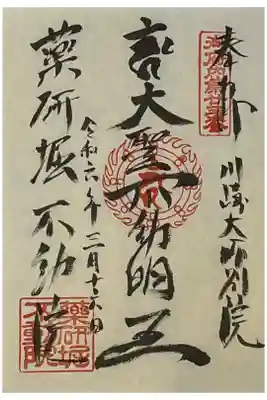 奉拝 川崎大師別院
大聖不動明王
令和六年 月十 日
薬研堀不動院